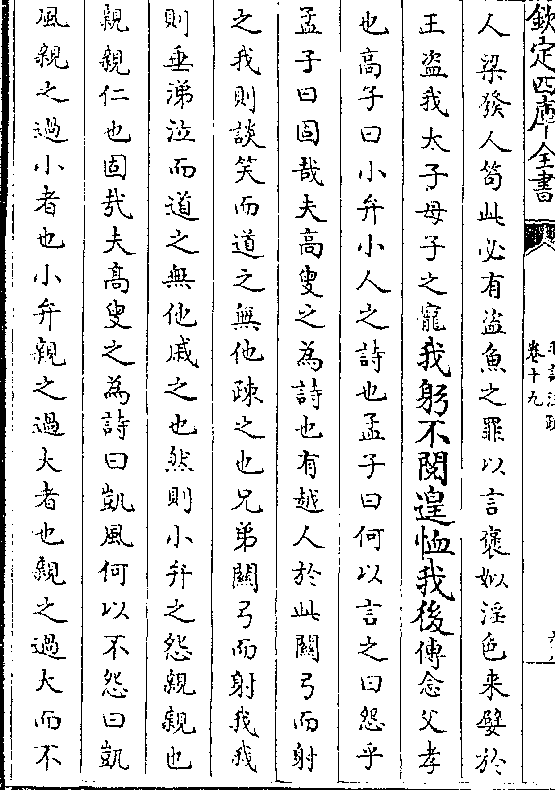 欽定四庫全書
卷十九
人梁發人笱此必有盜魚之罪以言褒姒淫色来嬖於
王盜我太子母子之寵我躬不閱遑恤我後傳念父孝
也高子曰小弁小人之詩也孟子曰何以言之曰怨乎
孟子曰固哉夫高叟之為詩也有越人於此關弓而射
之我則談笑而道之無他疎之也兄弟關弓而射我我
則垂涕泣而道之無他戚之也然則小弁之怨親親也
親親仁也固哉夫高叟之為詩曰凱風何以不怨曰凱
風親之過小者也小弁親之過大者也親之過大而不